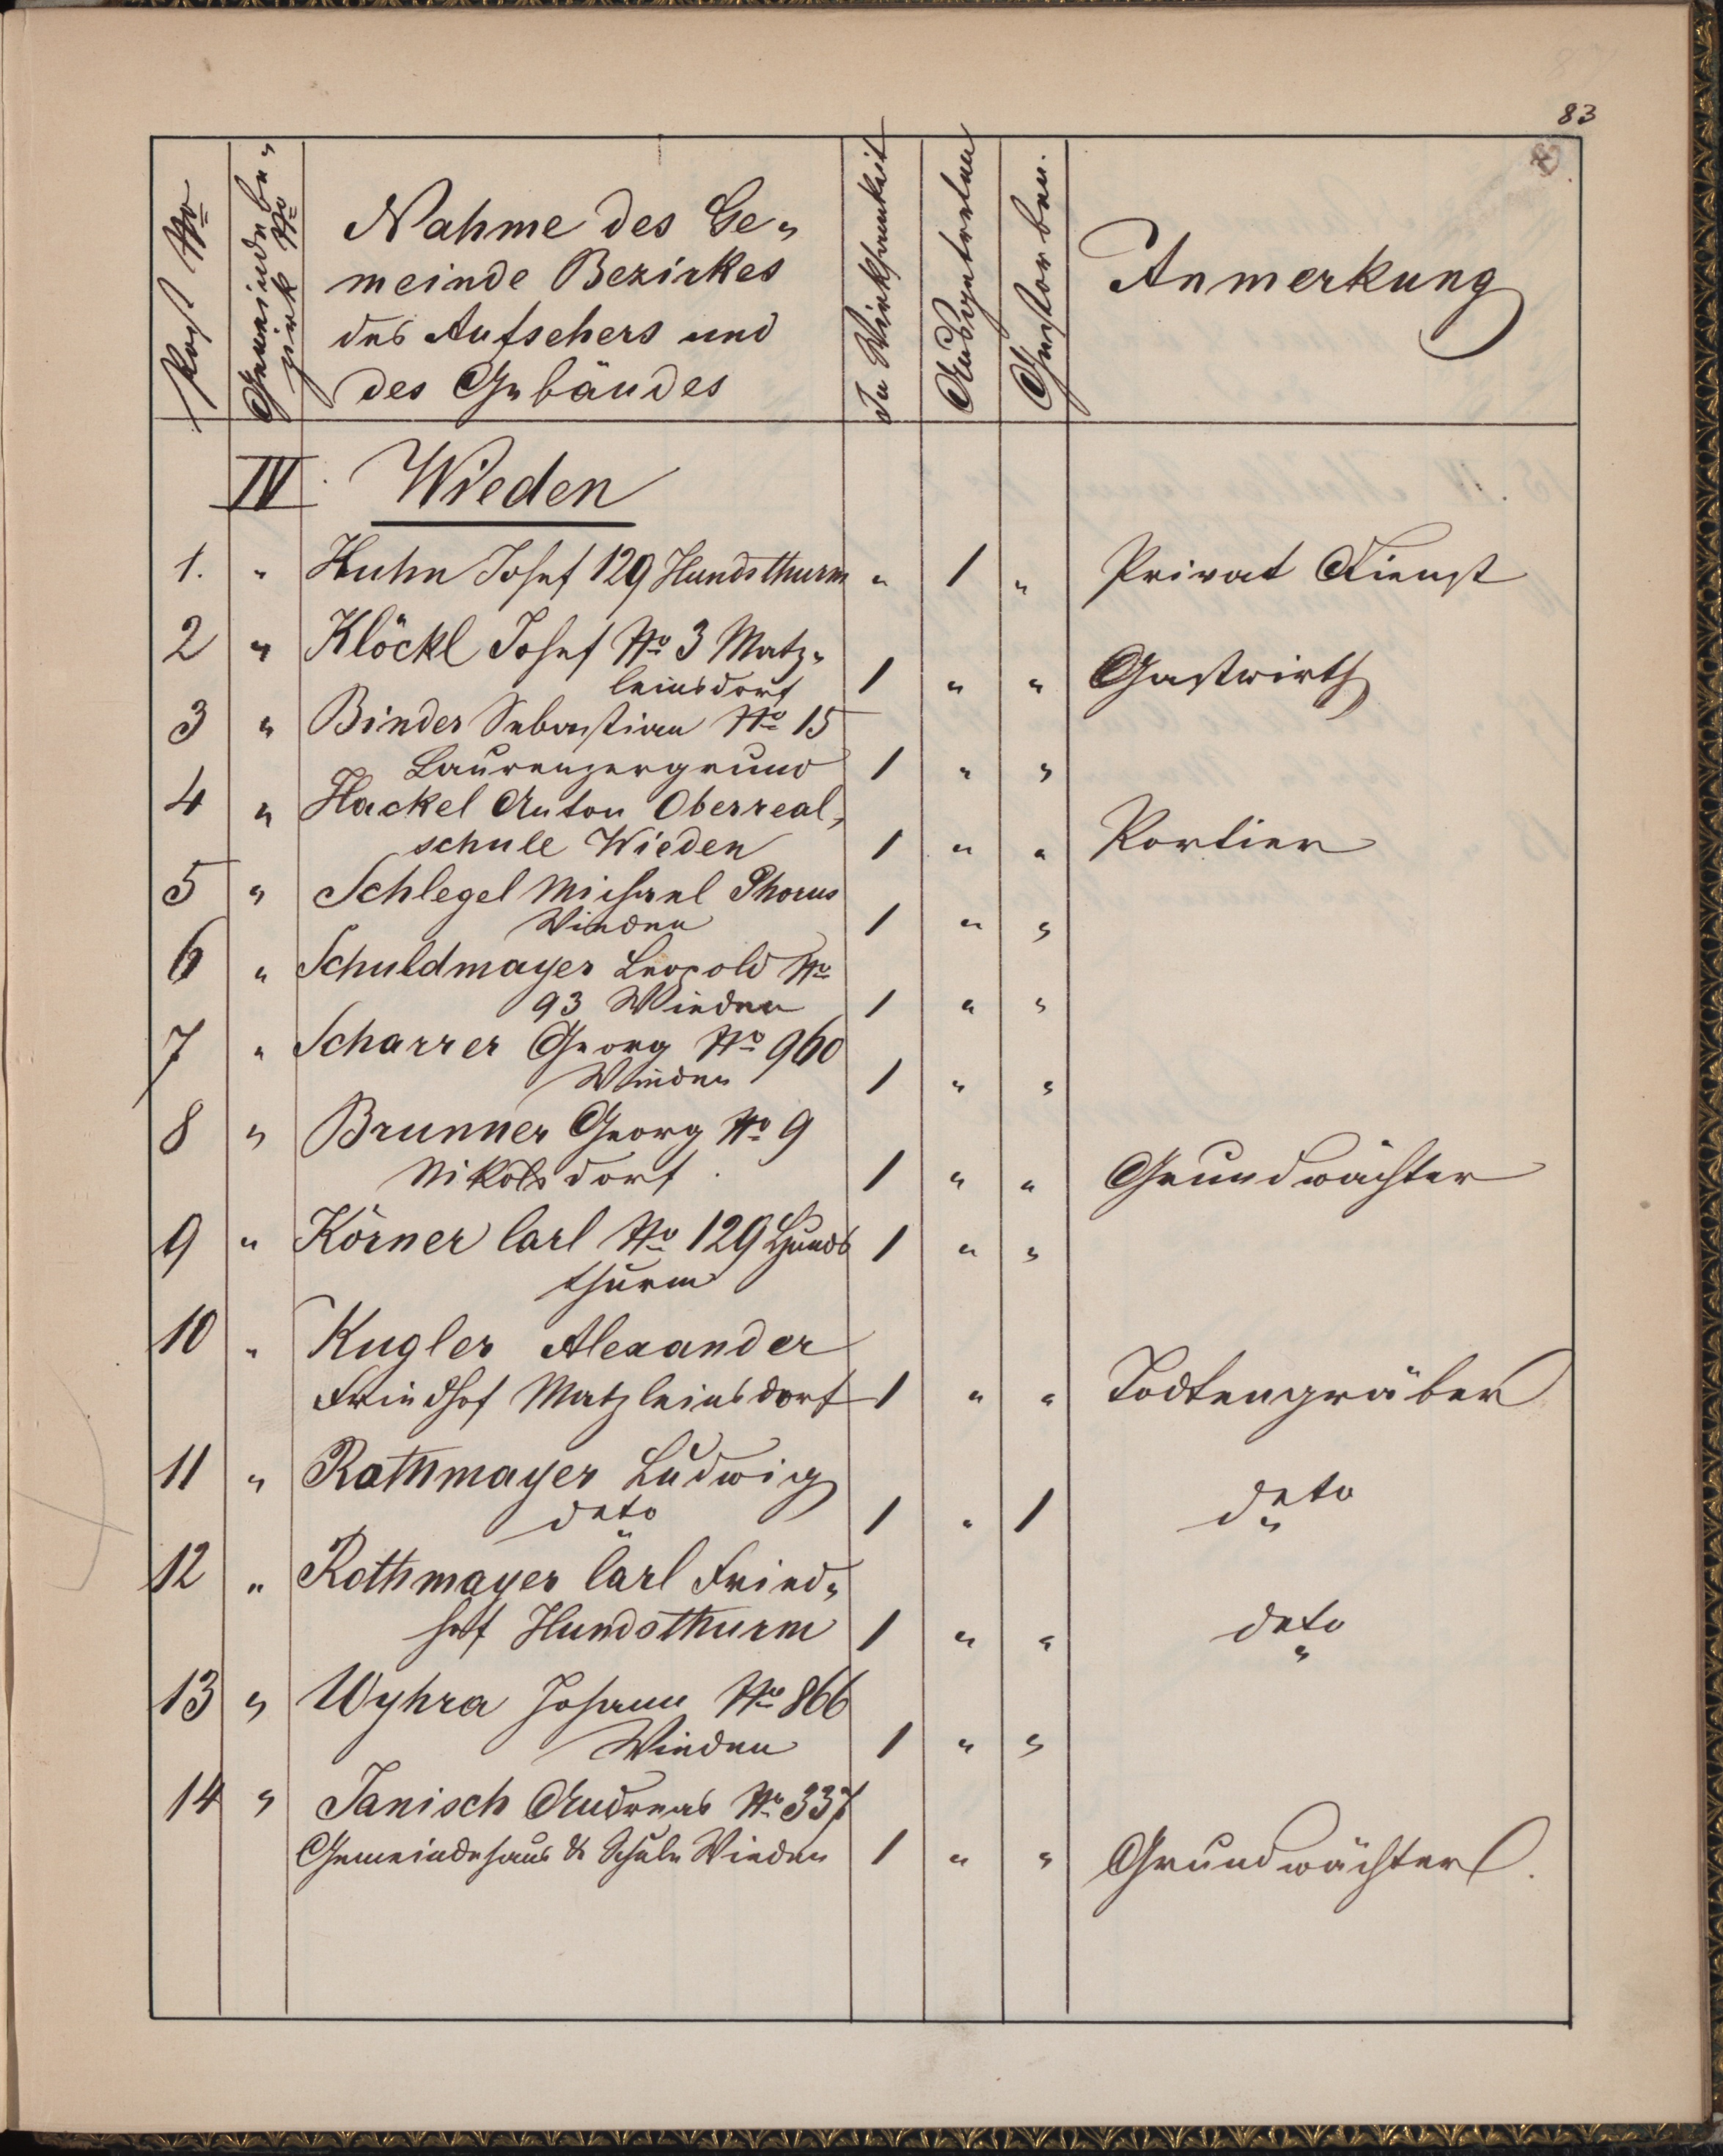 83
Post No
Gemeinde be„
zirk No
Nahme des Ge„
meinde Bezirkes
des Aufsehers und
des Gebäudes
In Wirksamkeit
Ausgetreten
Gestorben.
Anmerkung
IV. Wieden
1. „ Huhn Josef 129 Hundsthurm „ 1 „ Privat Dienst
2 „ Klöckl Josef No 3 Matz„
leinsdorf 1 „ „ Gastwirth
3 „ Binder Sebastian No 15
Laurenzergrund 1 „ „
4 „ Hackel Anton Oberreal„
schule Wieden 1 „ „ Portier
5 „ Schlegel Michael Phorus
Wieden 1 „ „
6 „ Schuldmayer Leopold No
93 Wieden 1 „ „
7 „ Scharrer Georg No 960
Wieden 1 „ „
8 „ Brunner Georg No 9
Nikolsdorf. 1 „ „ Grundwächter
9 „ Körner Carl No 129 Hunds 1 „ „
thurm
10 „ Kugler Alexander
Friedhof Matzleinsdorf 1 „ „ Todtengräber
11 „ Rothmayer Ludwig
deto „ 1 „ 1 deto „
12 „ Rothmayer Carl Fried„
hof Hundsthurm 1 „ „ deto „
13 „ Wyhra Johann No 866
Wieden 1 „ „
14 „ Janisch Andreas No 337
Gemeindehaus & Schule Wieden 1 „ „ Grundwächter.